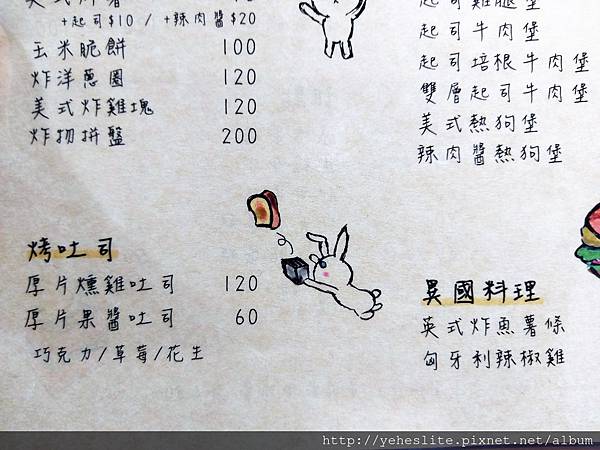 +起司$10 / +辣肉醬$20
玉米脆餅 100
炸洋蔥圈 120
美式炸雞塊 120
炸物拼盤 200
烤吐司
厚片燻雞吐司 120
厚片果醬吐司 60
巧克力/草莓/花生
起司雞腿堡
起司牛肉堡
起司培根牛肉堡
雙層起司牛肉堡
美式熱狗堡
辣肉醬熱狗堡
異國料理
英式炸魚薯條
匈牙利辣椒雞
http://yeheslite.pixnet.net/album